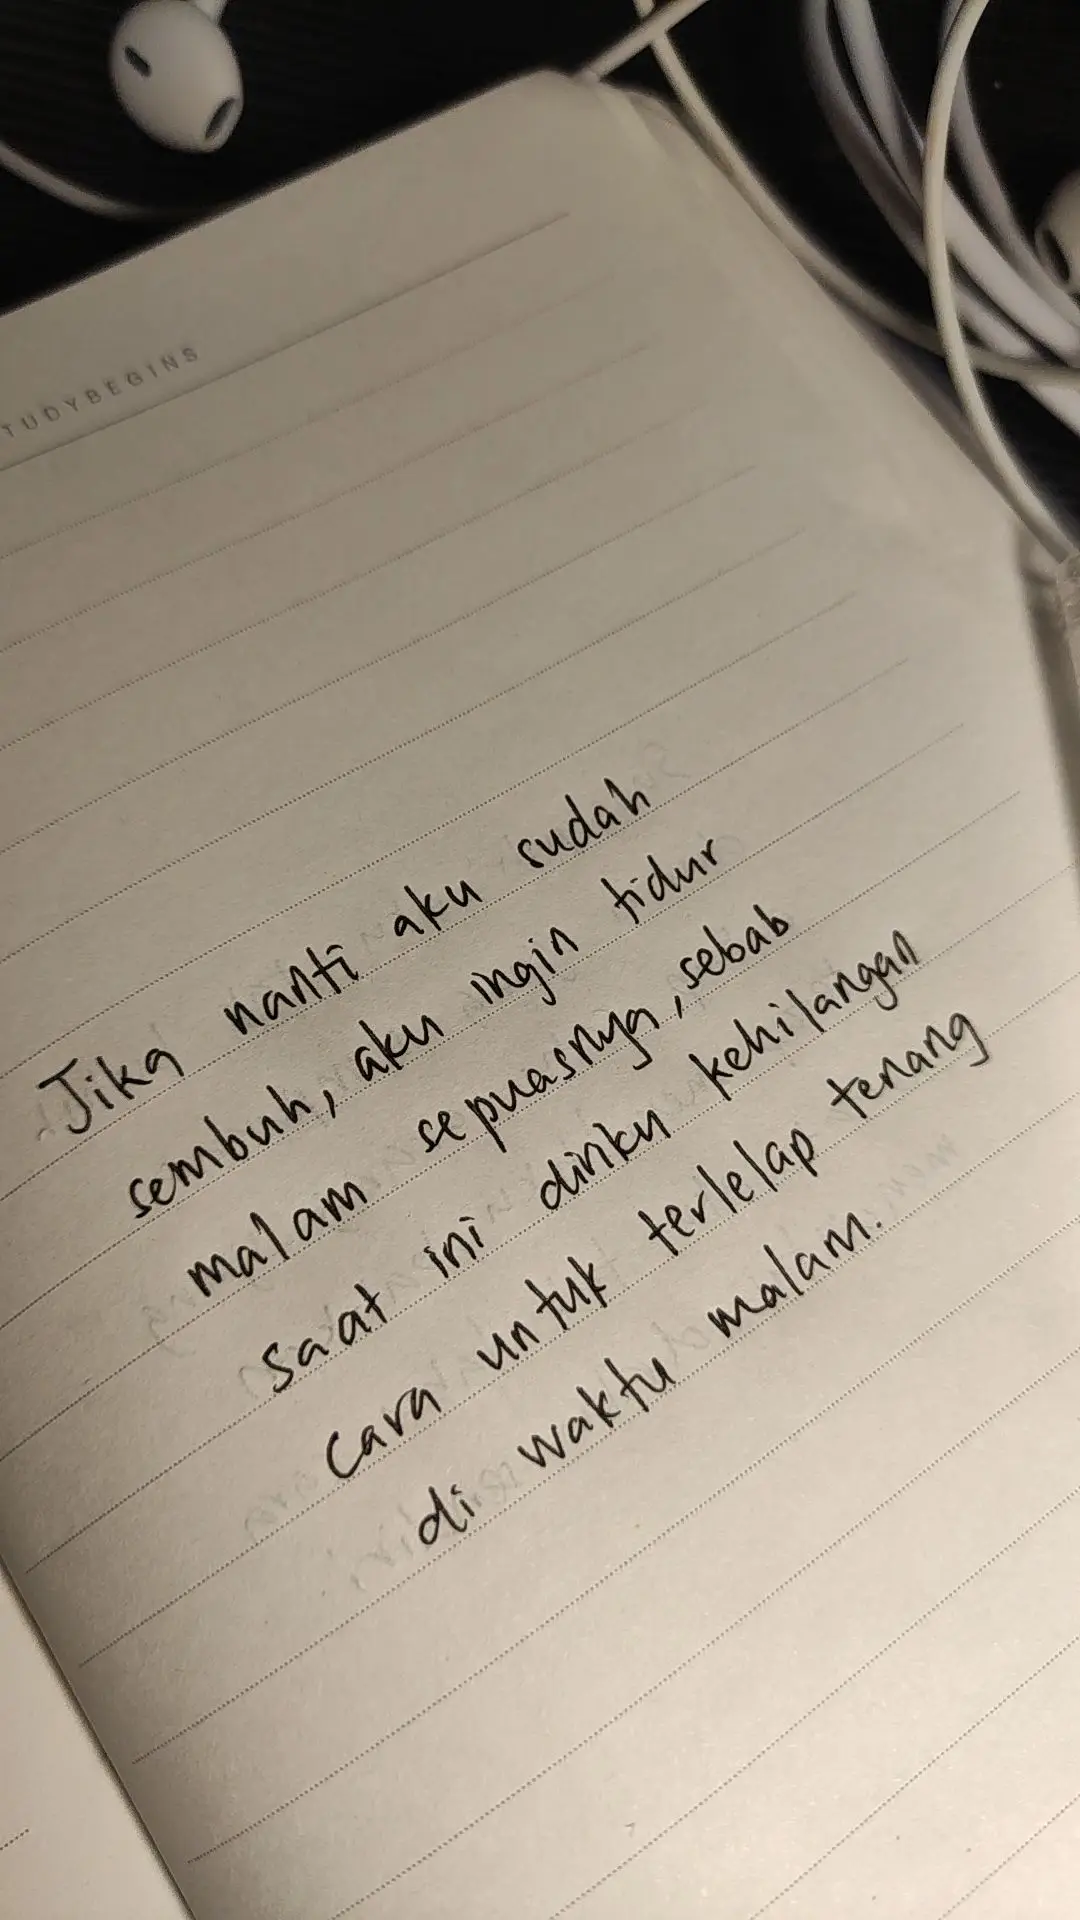 TUDYBEGINS
Jika nanti aku sudah
sembuh, aku ingin tidur
malam sepuasnya, sebab
saat ini diriku kehilangan
cara untuk terlelap tenang
di waktu malam.